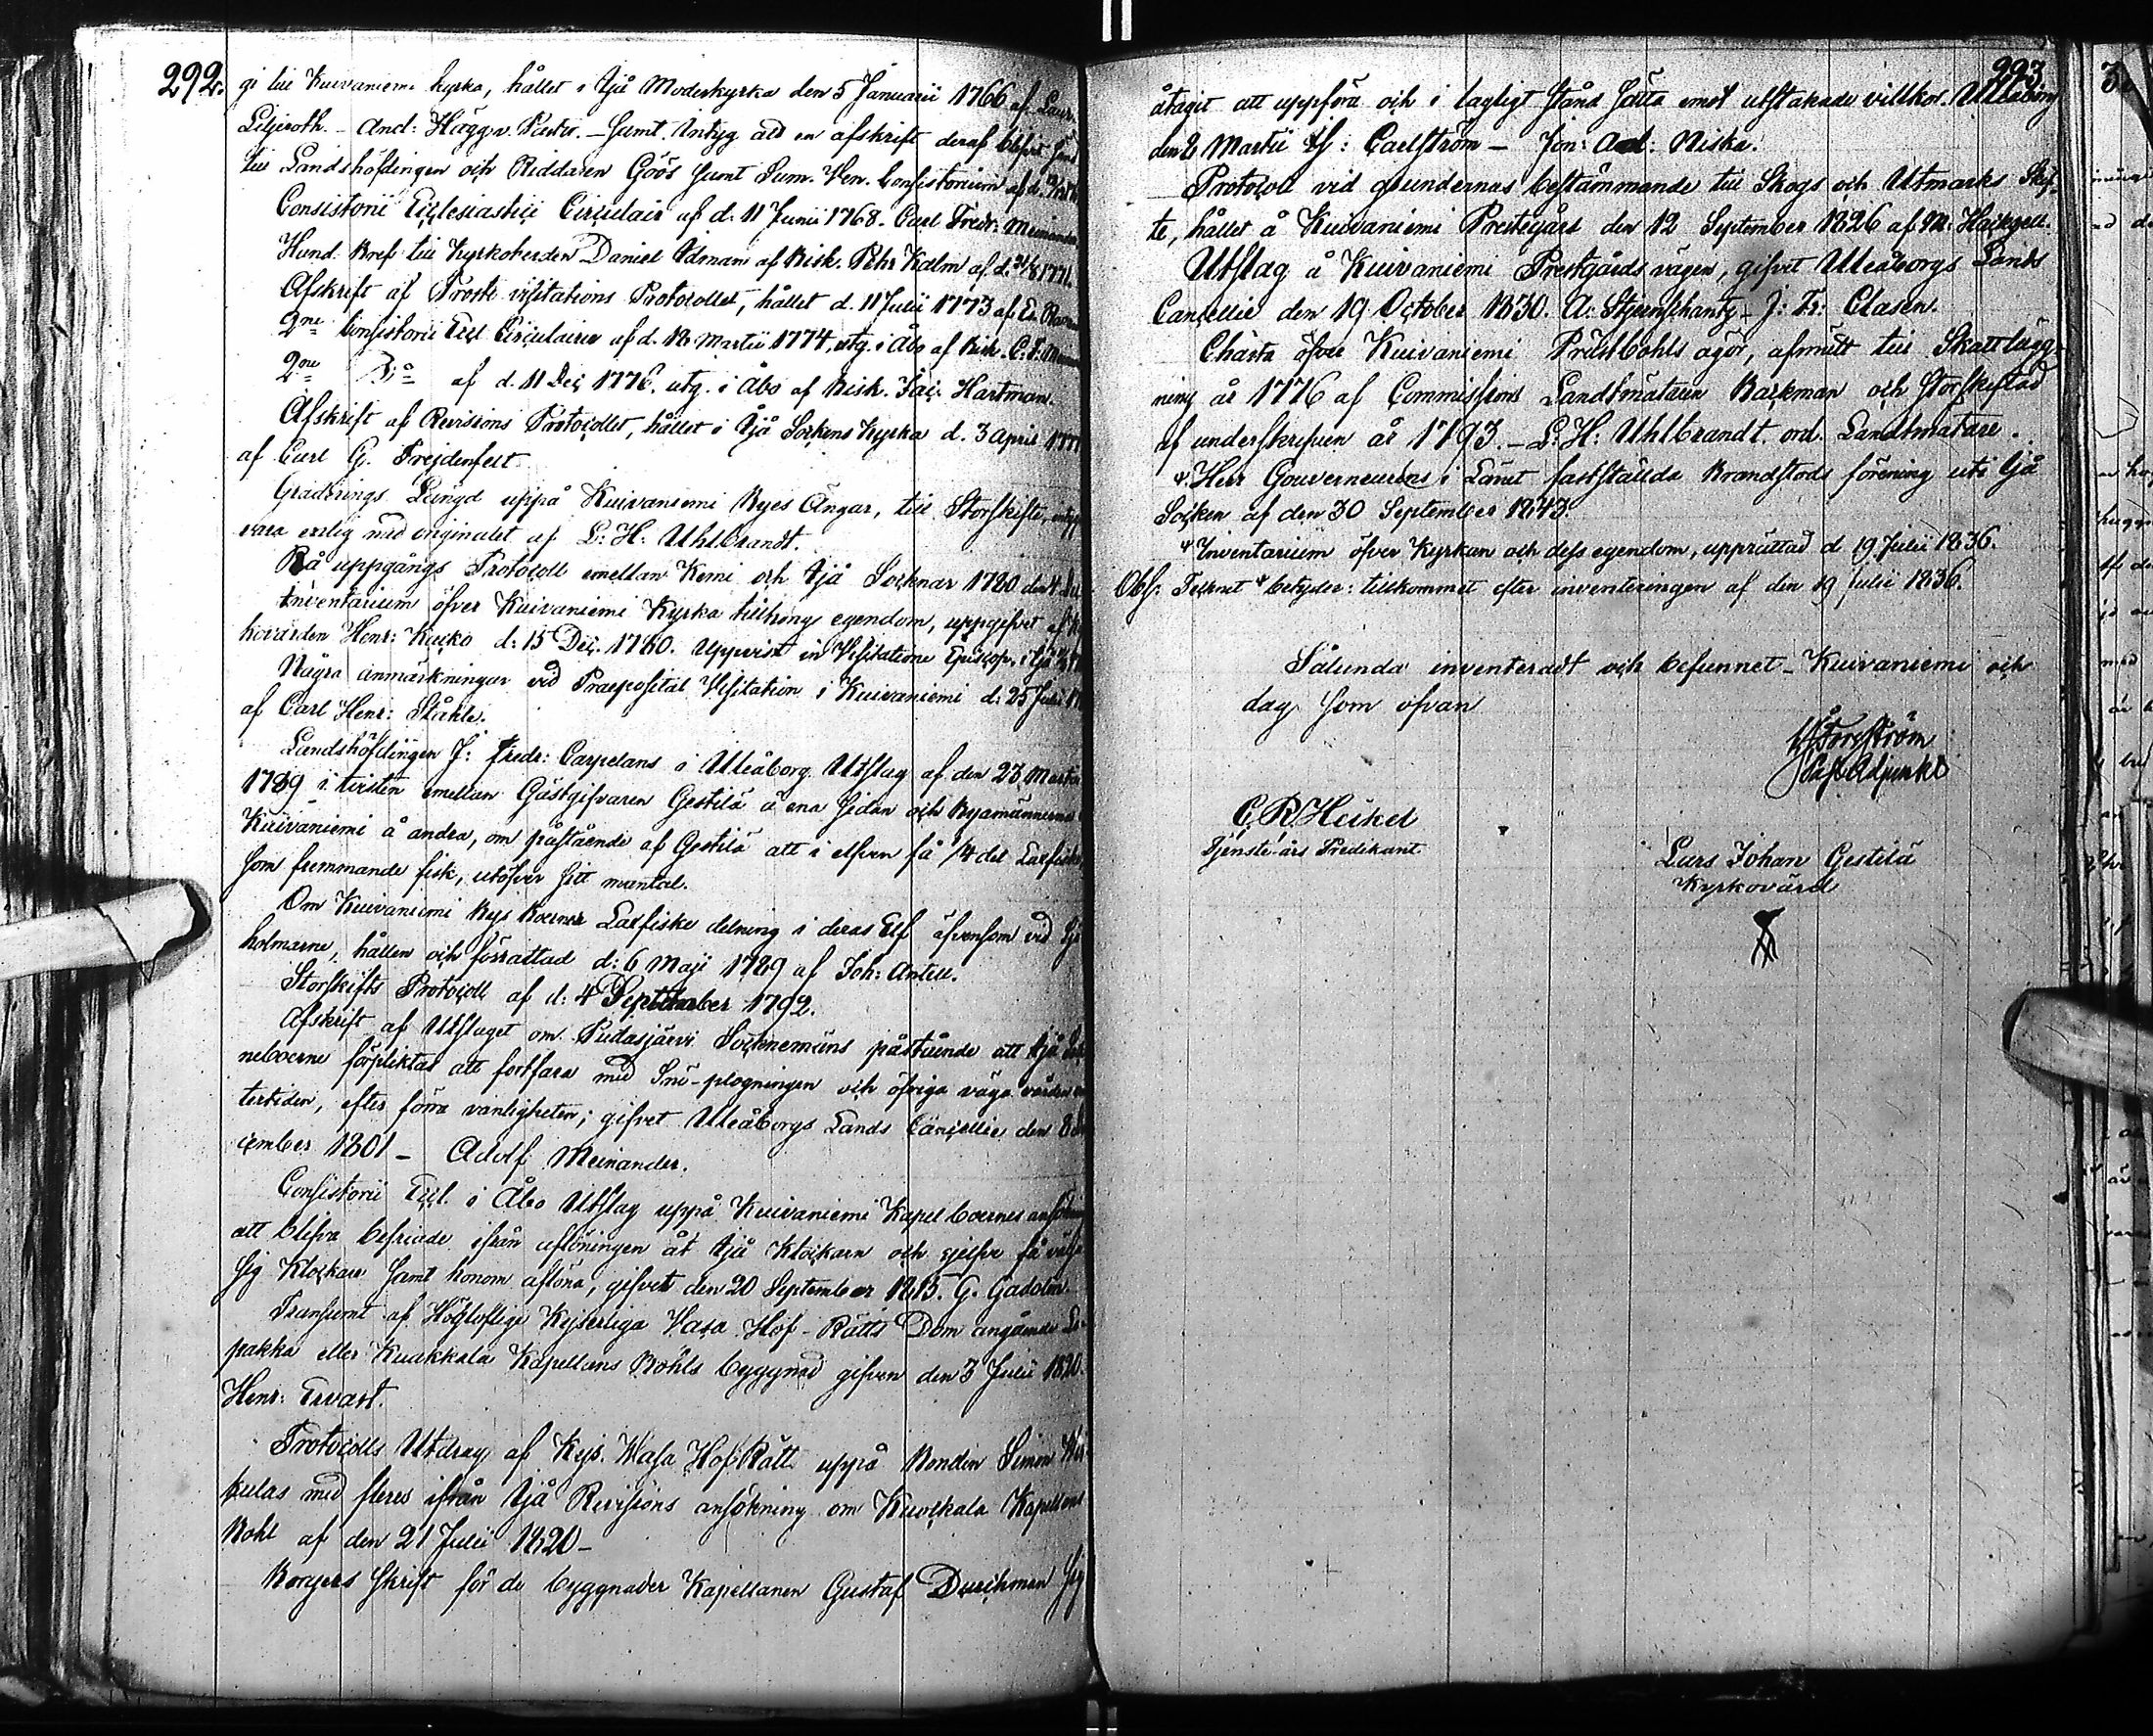 292.
gi till Kuivaniemi kyrka, hållet i Ijå Moderkyrka den 5 Januarii 1766 af Laur.
Liljeroth. - And: Häggn. Pastor. - Samt Intyg att en afskrift deraf blifvit
till Landshöfdingen och Riddaren Göös samt Sum. Ven. Consistorium af d.
Consistorii Ecclesiastici Circulair af d. 11 Junii 1768. Carl Fredr: Meinander
Hund. Bref till Kyrkoherden Daniel Idman af Bisk. Pehr Kalm af d. 21/8 1771.
Afskrift af Prosti visitations Protocollet, hållet d. 11 Julii 1773 af
2ne Consistorii Eccl Circulairer af d. 18 Martii 1774, utg. i Åbo af Bisk. C. F.
2ne D:o af d. 11 Dec 1776. utg. i Åbo af Bisk. Jac. Hartman.
Afskrift af Revisions Protocollet, hållet i Ijå Sockens Kyrka d. 3 April 177
af Carl G. Frejdenfelt
Graderings Längd uppå Kuivaniemi Byes Ängar, till Storskifte,
vara enlig med originalet af L: H: Uhlbrandt.
Rå uppgångs Protocoll emellan Kemi och Ijå Socknar 1780 den 4
Inventarium öfver Kuivaniemi Kyrka tillhörig egendom, uppgifvet af
kovärden Henr: Kuiko d: 15 Dec. 1780. Uppvist in Visitatione Episcop. i Ijå
Några anmärkningar vid Praepositat Visitation i Kuivaniemi d: 25 Julii
af Carl Henr: Ståhle.
Landshöfdingen J: Fredr: Carpelans i Uleåborg Utslag af den 23 Martii
1789 i tvisten emellan Gästgifvaren Gestilä å ena sidan och Byamännerna
Kuivaniemi å andra, om påstående af Gestilä att i elfven få 1/4 del Laxfiske,
som fremmande fisk, utöfver sitt mantal.
Om Kuivaniemi Bys Boernes Laxfiske delning i deras Elf äfvensom vid
holmarne, hållen och förrattad d: 6 Maji 1789 af Joh: Antell.
Storskifts Protocoll af d: 4 September 1792.
Afskrift af Utslaget om Pudasjärvi Socknemäns påstående att Ijå
neboerne förpliktas att fortfara med Snö-plogningen och öfriga väga vården
tertiden, efter förra vanligheten; gifvet Uleåborgs Lands Cancellie den 8
cember 1801 - Adolf Meinander.
Consistorii Eccl. i Åbo Utslag uppå Kuivaniemi Kapelboernes ansökning
att blifva befriade ifrån aflöningen åt Ijå Klockaren och sjelfve få välja
sig Klockare samt honom aflöna, gifvet den 20 September 1815. G. Gadolin.
Transumt af Högloflige Kejserliga Vasa Hof-Rätts Dom angående
pakka eller Kuakkala Kapellans Bohls byggnad gifven den 3 Julii 1820.
Henr: Ervast.
Protocolls Utdrag af Kejs. Wasa Hof Rätt uppå Bonden Simon
kulas med fleres ifrån Ijå Revisions ansökning om Kuockala Kapellans
Bohl af den 21 Julii 1820 -
Borgers skrift för de byggnader Kapellanen Gustaf Durchman sig
293
åtagit att uppföra och i lagligt stånd sätta emot utstakade villkor. Uleåborg
den 8 Martii : Carlström - Jon: Niska.
Protocoll vid grundernas bestämmande till Skogs och Utmarks Skif-
te, hållet å Kuivaniemi Prestegård den 12 September 1826 af M: Hackzell.
Utslag å Kuivaniemi Prestgårds vägen, gifvet Uleåborgs Lands
Cancellie den 19 October 1830. A: Stjernschantz - J: Fr: Clasen.
Charta öfver Kuivaniemi Prästbohls ägor, afmätt till Skattlägg-
ning år 1776 af Commissions Landtmätaren Barkman och Storskiftad
af underskrifven år 1793. - L: H: Uhlbrandt. ord. Landtmätare.
Herr Gouverneurens i Länet fastställda Brandstods förening uti Ijå
Socken af den 30 September 1843.
Inventarium öfver Kyrkan och dess egendom, upprättad d 19 Julii 1836.
Obs: Tecknet betyder: tillkommet efter inventeringen af den 19 Julii 1836.
Sålunda inventeradt och befunnet - Kuivaniemi och
dag som ofvan
Forsström
Past. Adjunkt
C. R. Heikel
Tjenste-års Predikant
Lars Johan Gestilä
Kyrkovärd